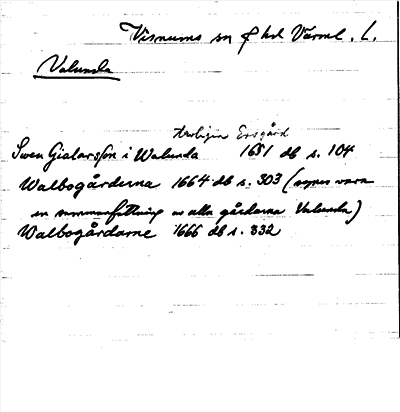 Visnums sn hd Värml. l.
Valunda
troligen Ersgård
Swen Gialarsson i Walunda 1651 db s. 104
Walbogårderna 1664 db s. 303 (synes vara
en sammanfattning av alla gårdarna Valunda)
Walbogårdarne 1666 db s. 332